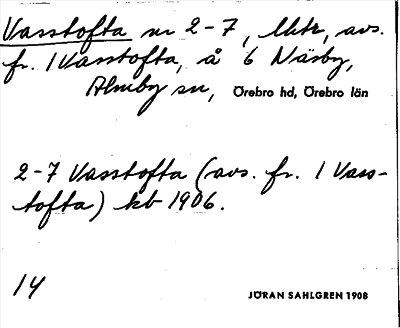 Vasstofta nr 2-7, lht, avs.
fr. 1 Vasstofta, å 6 Näsby,
Almby sn, Örebro hd, Örebro län
2-7 Vasstofta (avs. fr. 1 Vass-
tofta) kb 1906.
14
JÖRAN SAHLGREN 1908